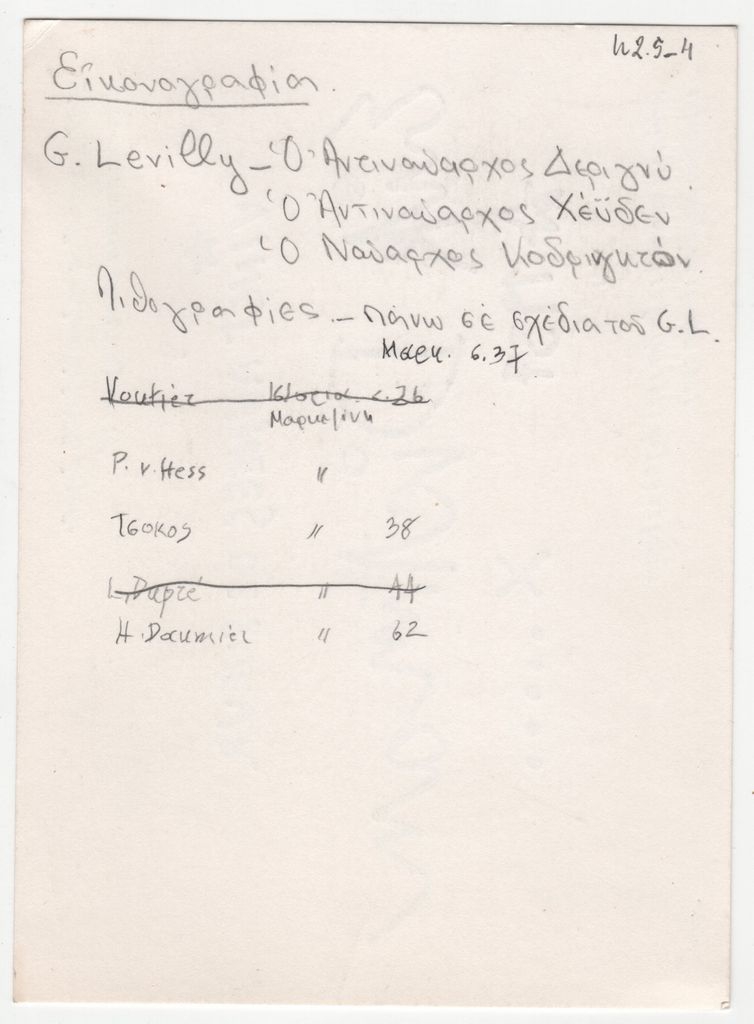 42.5-4
Εἰκονογραφία.
G. Levilly – Ὁ Ἀντιναύαρχος Δεριγνύ
Ὁ Ἀντιναύαρχος Χέϋδεν
Ὁ Ναύαρχος Κοδριγκτών.
Λιθογραφίες – πάνω σέ σχέδια τοῦ G.L.
Μαρκ. σ.37
Ἱστορία σ. 26
Μαρκεζίνη
P. v. Hess "
Τσόκος " 38
L. Dupré " 44
H. Daumier " 62